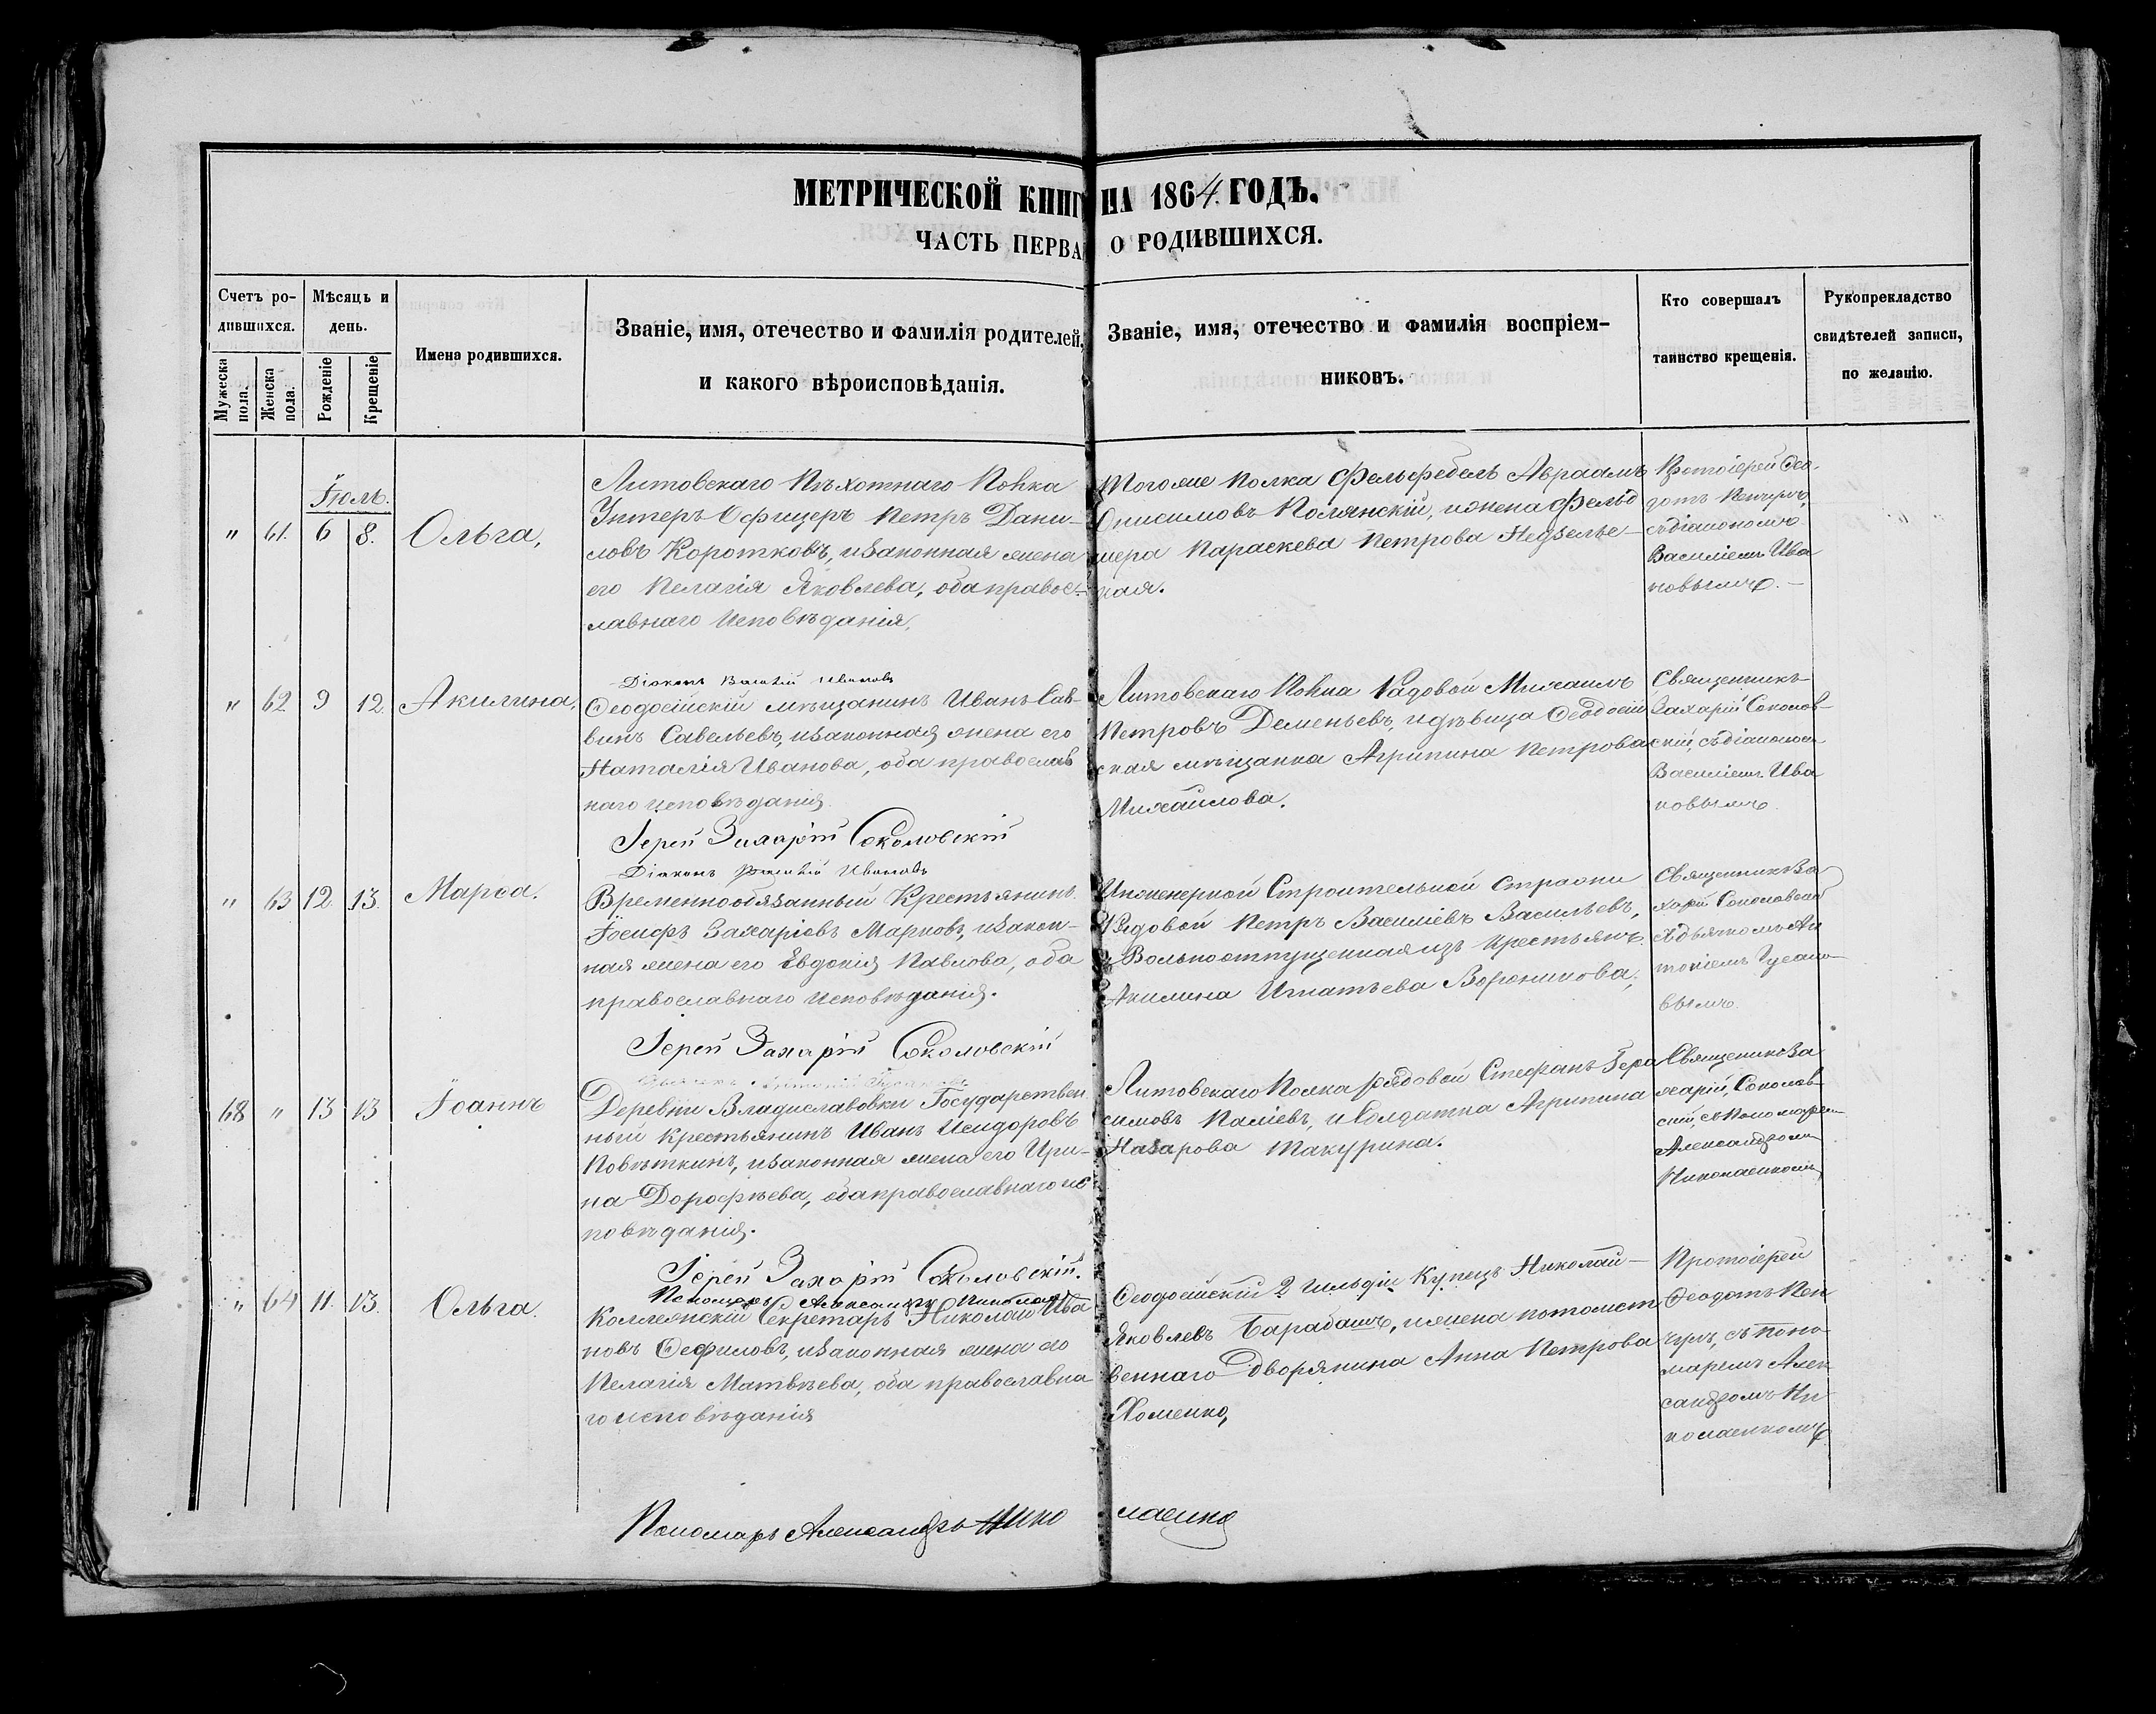 МЕТРИЧЕСКОЙ КНИГ НА 1864 ГОДЪ.
ЧАСТЬ ПЕРВА О РОДИВШИХСЯ.
Счетъ ро-
дившихся.
Мужеска
пола.
Женска
пола.
Мѣсяцъ и
день.
Рожденіе
Крещеніе
Имена родившихся.
Званіе, имя, отечество и фамилія родителей,
и какого вѣроисповѣданія.
Званіе, имя, отечество и фамилія воспріем-
никовъ.
Кто совершалъ
таинство крещенія.
Рукопрекладство
свидѣтелей записи,
по желанію.
Іюль.
" 61. 6 8. Ольга,
Литовскаго Пѣхотнаго Полка
Унтеръ Офицеръ Петръ Дани-
ловъ Коротковъ, и законная жена
его Пелагія Яковлева, оба правос-
лавнаго исповѣданія.
Тогоже Полка Фельдфебель Авраамъ
Онисимовъ Полянскій, и жена фельд
шера Параскева Петрова Недзельс-
кая.
Протоіерей Ѳео-
дотъ
съ діакономъ
Василіемъ Ива
новымъ. -
Діаконъ Василій Ивановъ
" 62 9 12. Акилина,
Ѳеодосійскій мѣщанинъ Иванъ Сав-
винъ Савельевъ, и законная жена его
Наталія Иванова, оба православ
наго исповѣданія.
Литовскаго Полка Рядовой Михаилъ
Петровъ Деменьевъ, и дѣвица Ѳеодосій
ская мѣщанка Агрипина Петрова
Михайлова.
Священникъ
Захарій Соколов-
скій, съ діакономъ
Василіемъ Ива
новымъ.
Іерей Захарій Соколовскій
Діаконъ Василій Ивановъ
" 63 12. 13. Марѳа.
Временнообязанный Крестьянинъ
Іосифъ Захаріевъ Марковъ, и закон-
ная жена его Евдокія Павлова, оба
православнаго исповѣданія.
Инженерной Строительной Стражи
Рядовой Петръ Василіевъ Васильевъ,
и Вольноотпущенная изъ крестьянъ
Акилина Игнатьева Воронинова,
Священникъ За
харій Соколовскій
съ дьячкомъ Ан
тоніемъ Гусако-
вымъ.
Іерей Захарій Соколовскій
68 " 13 13 Іоаннъ
Деревни Владиславовки Государствен
ный крестьянинъ Иванъ Исидоровъ
Повѣткинъ, и законная жена его Ири-
на Дорофѣева, оба православнаго ис
повѣданія.
Литовскаго Полка рядовой Стефанъ Гера
симовъ Паліевъ, и Солдатка Агрипина
Назарова Макурина.
Священникъ За
харій, Соколов-
скій, съ Пономаремъ
Александромъ
Николаенкомъ
Іерей Захарій Соколовскій.
Пономарь Александръ Николаенко
" 64 11. 13. Ольга.
Коллежскій Секретарь Николай Ива
новъ Ѳефиловъ, и законная жена его
Пелагія Матвѣева, оба православна
го исповѣданія
Ѳеодосійскій 2 гильдіи Купецъ Николай
Яковлевъ Барабашъ, и жена потомст
веннаго дворянина Анна Петрова
Хоменко,
Протоіерей
Ѳеодотъ
съ поно-
маремъ Алек-
сандромъ Ни-
колаенкомъ
Пономарь Александръ Нико лаенко